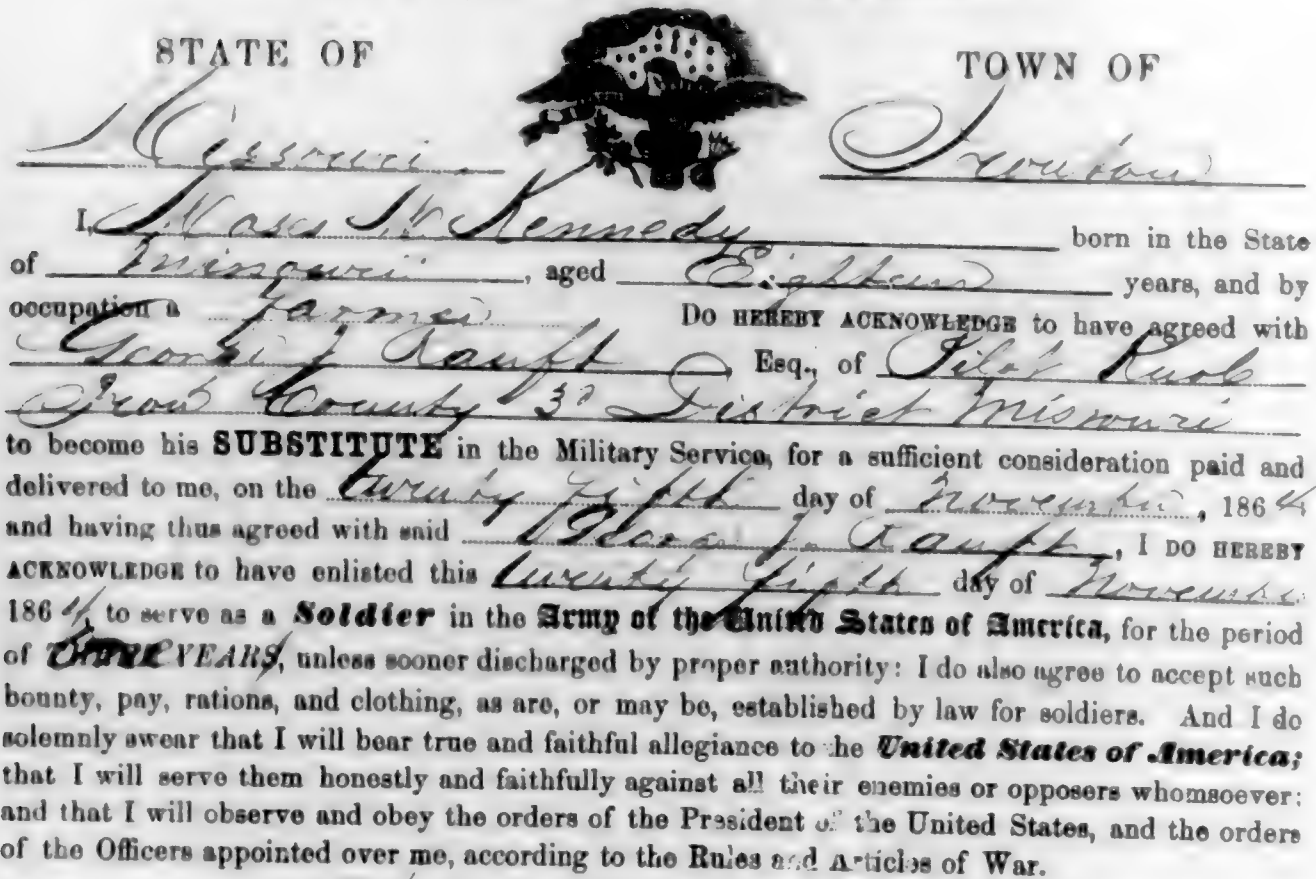 STATE OF TOWN OF
Missouri Ironton
I, Moses W. Kennedy born in the State
of Missouri, aged Eighteen years, and by
occupation a farmer Do HEREBY ACKNOWLEDGE to have agreed with
George J Rauft Esq., of Pilot Knob
Iron County 3d District Missouri
to become his SUBSTITUTE in the Military Service, for a sufficient consideration paid and
delivered to me, on the twenty fifth day of November, 1864
and having thus agreed with said George J. Rauft, I DO HEREBY
ACKNOWLEDGE to have enlisted this twenty fifth day of November
1864, to serve as a Soldier in the Army of the United States of America, for the period
of YEARS, unless sooner discharged by proper authority: I do also agree to accept such
bounty, pay, rations, and clothing, as are, or may be, established by law for soldiers. And I do
solemnly swear that I will bear true and faithful allegiance to the United States of America;
that I will serve them honestly and faithfully against all their enemies or opposers whomsoever:
and that I will observe and obey the orders of the President of the United States, and the orders
of the Officers appointed over me, according to the Rules and Articles of War.